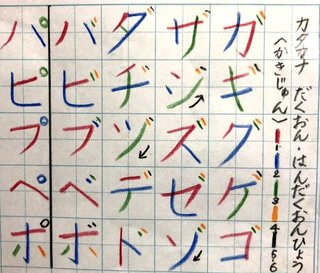 カタカナ だくおん・はんだくおんひょう
(かきじゅん) 1 2 3 4 5 6
ガギグゲゴ
ザジズゼゾ
ダヂヅデド
バビブベボ
パピプペポ